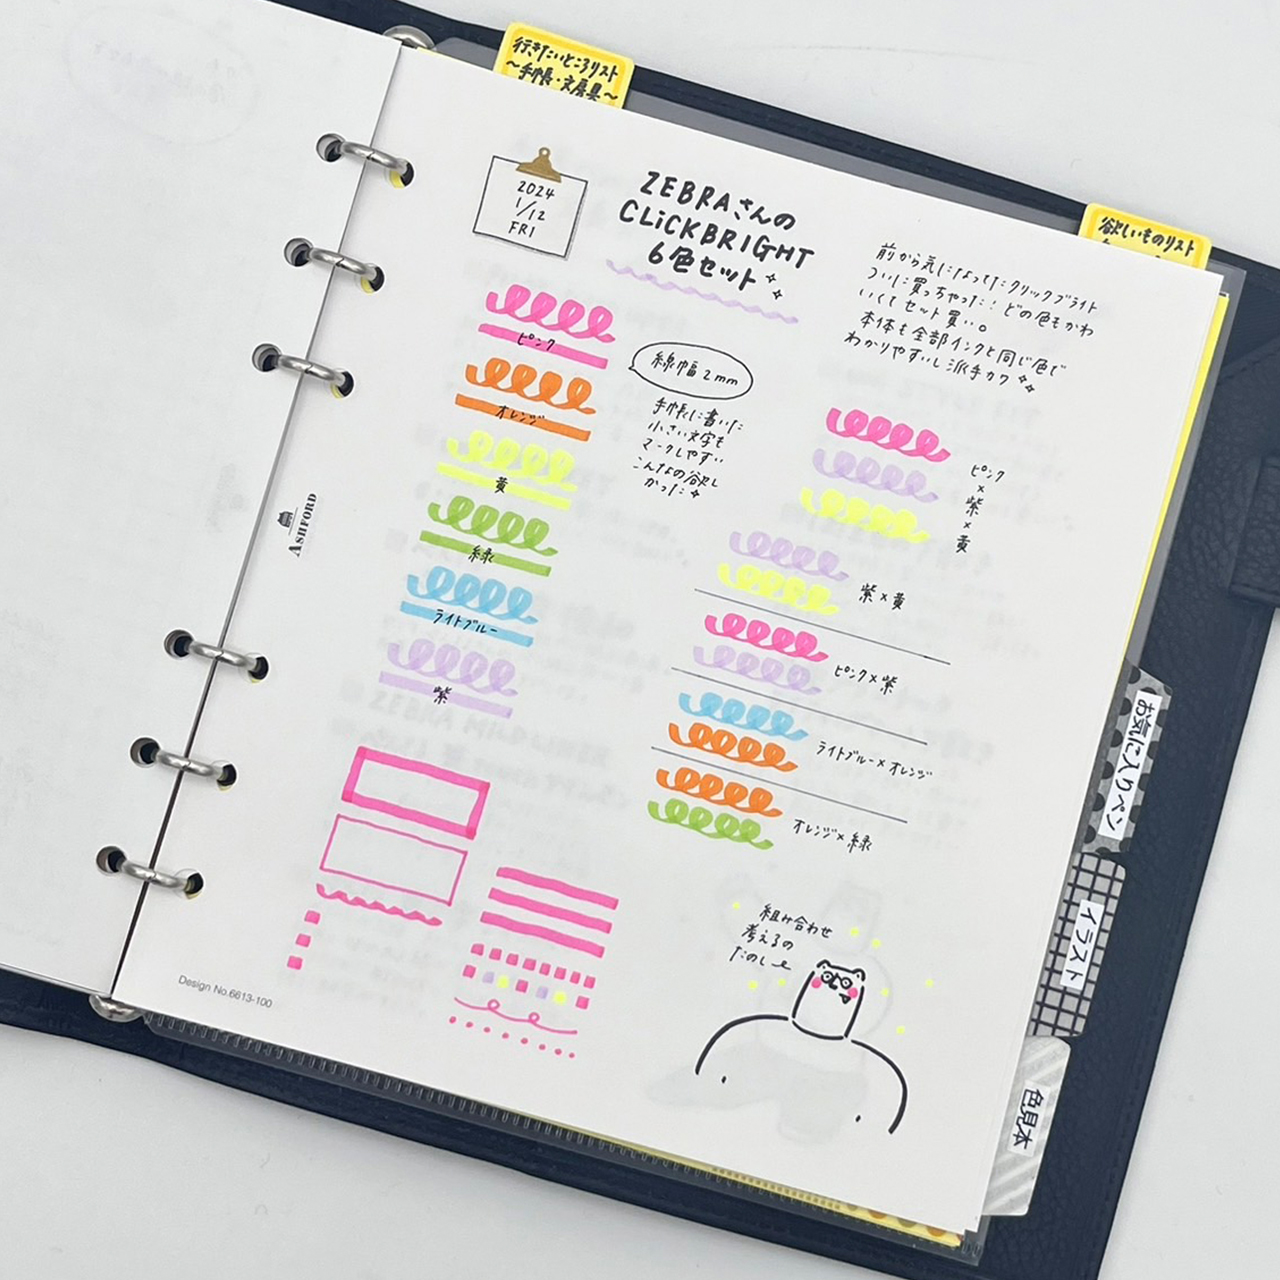 行きたいところリスト
～手帳・文房具～
欲しいものリスト
2024
1/12
FRI
ZEBRAさんの
CLiCKBRIGHT
6色セット
前から気になってたクリックブライト
ついに買っちゃった！どの色もかわ
いくてセット買い。
本体も全部インクと同じ色で
わかりやすいし派手カワ
ピンク
オレンジ
黄
緑
ライトブルー
紫
線幅2mm
手帳に書いた
小さい文字も
マークしやすい
こんなの欲し
かった
ピンク
×
紫
×
黄
紫×黄
ピンク×紫
ライトブルー×オレンジ
オレンジ×緑
組み合わせ
考えるの
たのしー
ASHFORD
Design No.6613-100
お気に入りペン
イラスト
色見本